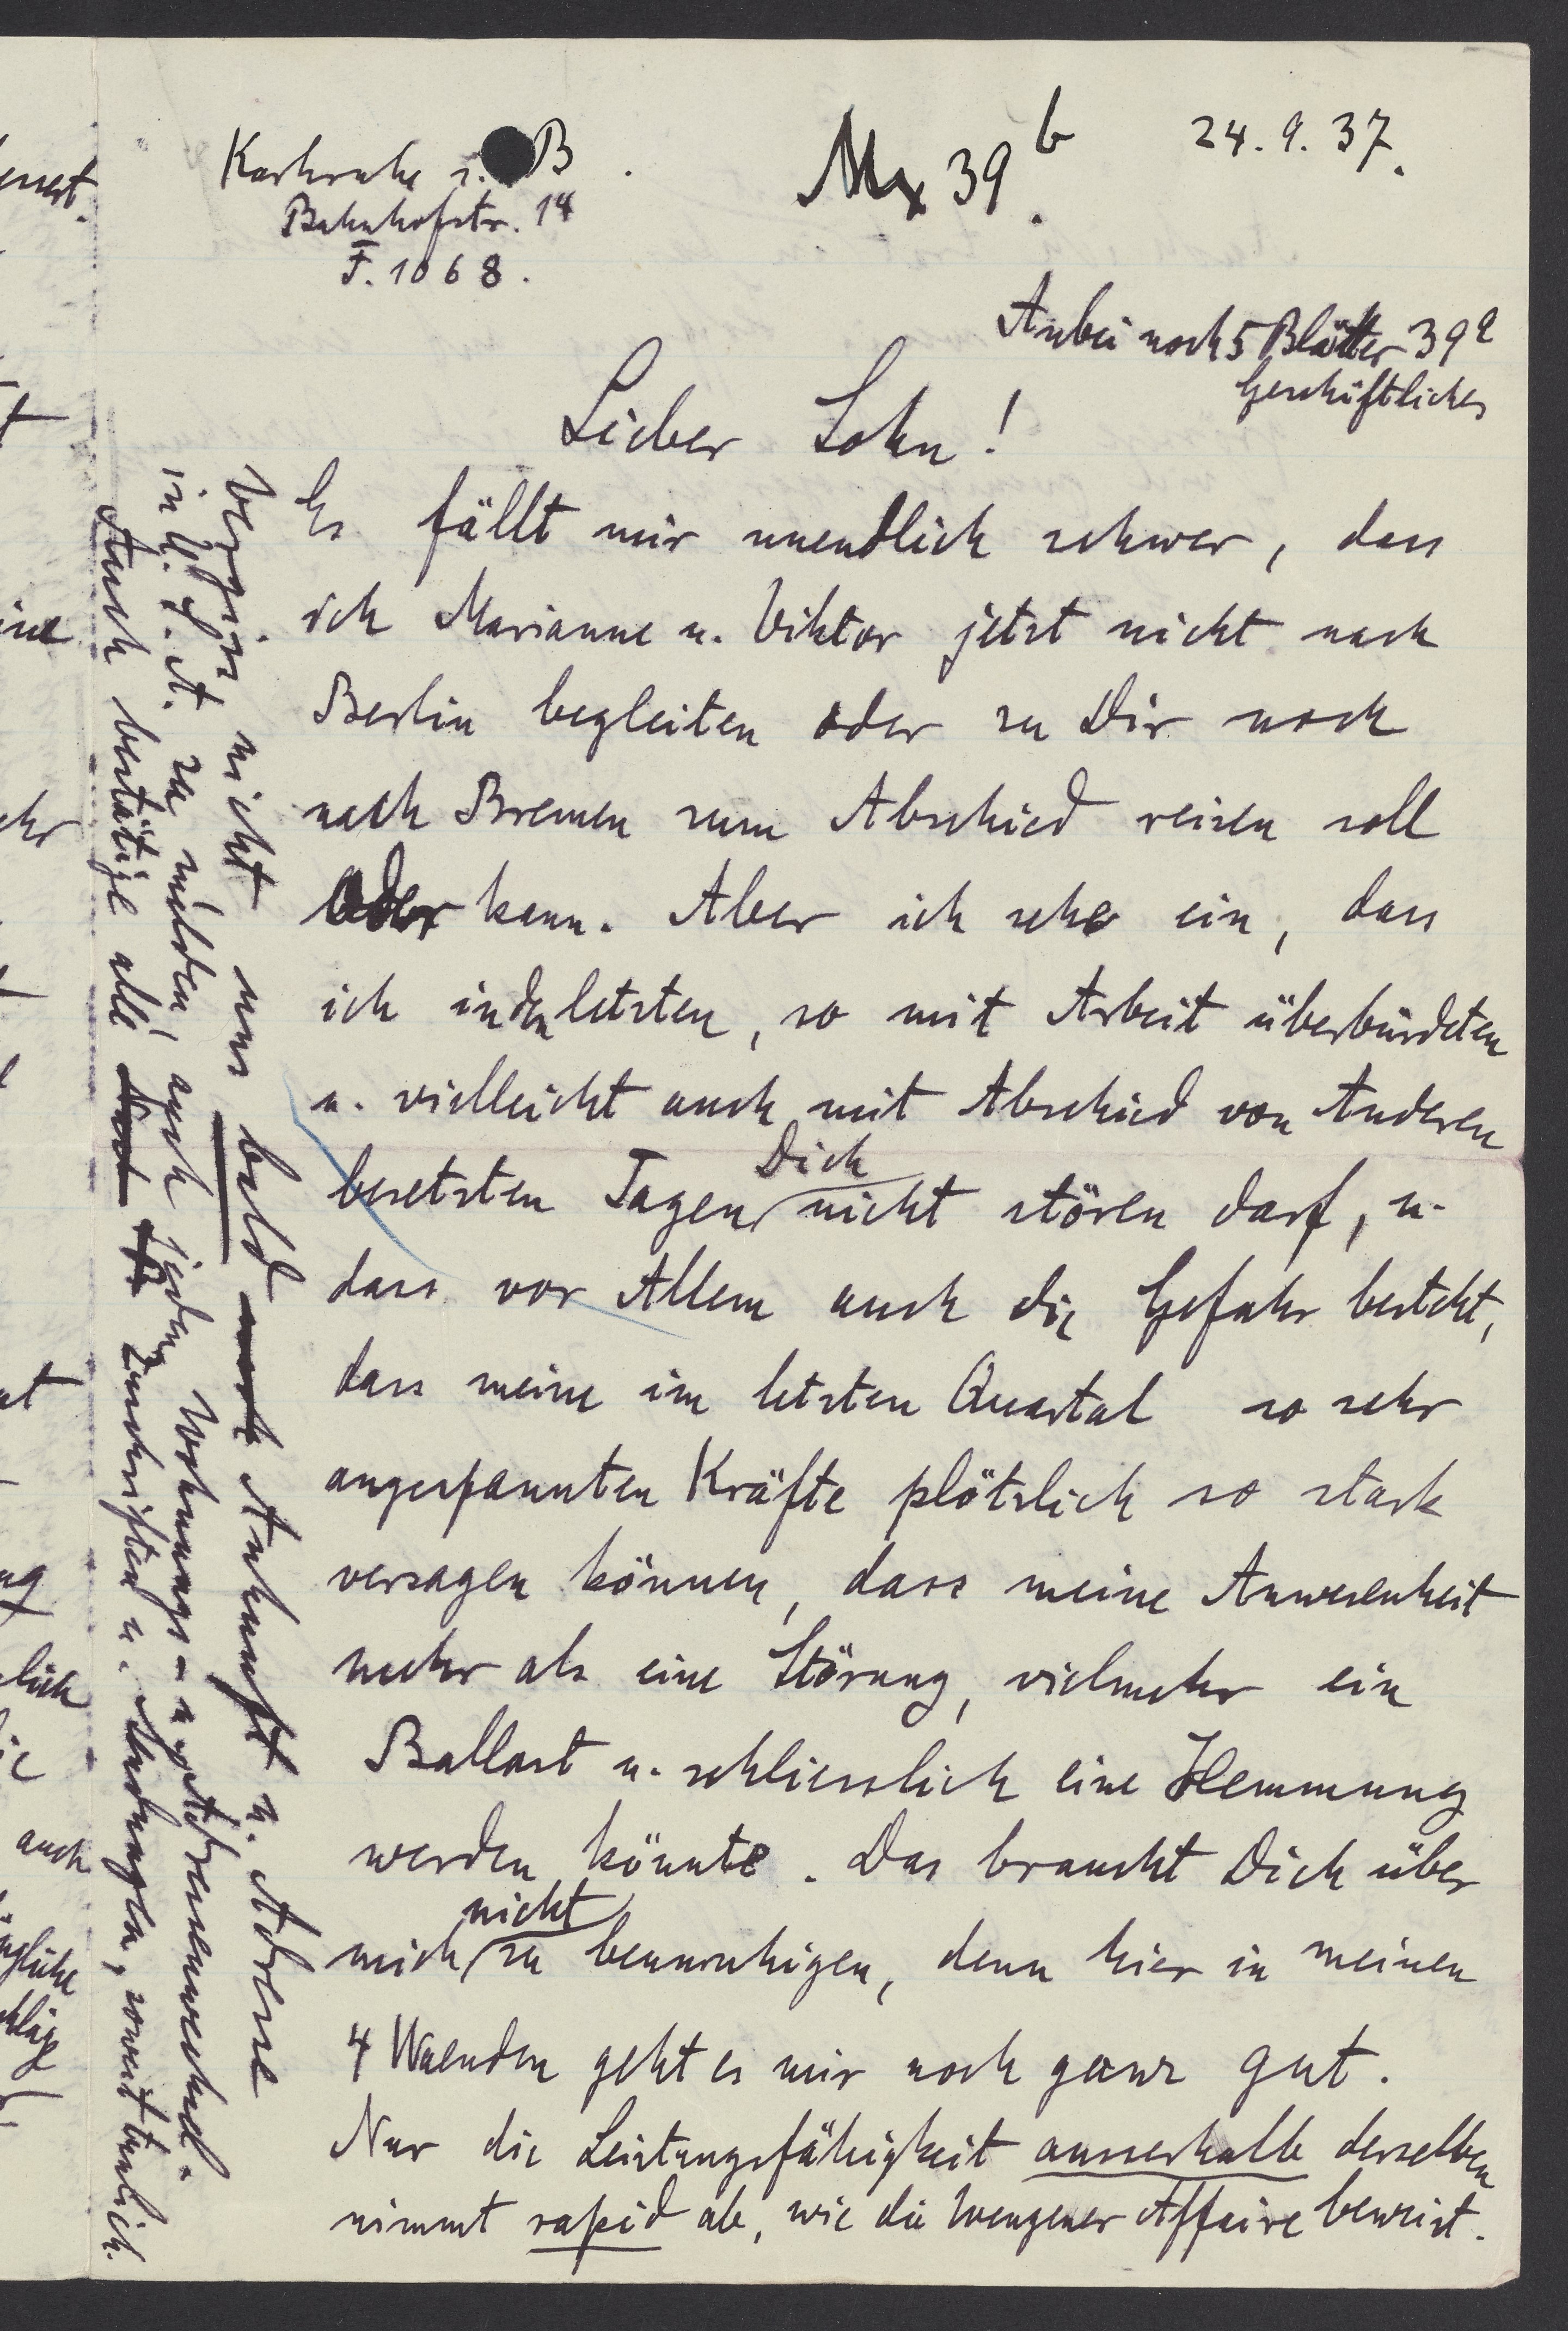 Karlsruhe i. B.
Bahnhofstr. 14
F. 1068.
Mx 39b.
24.9.37.
Anbei noch 5 Blätter 39a
Geschäftliches
Lieber Sohn!
Es fällt mir unendlich schwer, dass
ich Marianne u. Viktor jetzt nicht nach
Berlin begleiten oder zu Dir noch
nach Bremen zum Abschied reisen soll
oder kann. Aber ich sehe ein, dass
ich in den letzten, so mit Arbeit überbürdeten
u. vielleicht auch mit Abschied von Anderen
besetzten Tagen Dich nicht stören darf, u.
dass vor Allem auch die Gefahr besteht,
dass meine im letzten Quartal so sehr
angespannten Kräfte plötzlich so stark
versagen können, dass meine Anwesenheit
mehr als eine Störung, vielmehr ein
Ballast u. schliesslich eine Hemmung
werden könnte. Das braucht Dich über
mich nicht zu beunruhigen, denn hier in meinen
4 Waenden geht es mir noch ganz gut.
Nur die Leistungsfähigkeit ausserhalb derselben
nimmt rapid ab, wie die Wengener Affaire beweist.
Vergiss nicht uns bald noch Ankunft u. Adresse
in U.S.A. zu melden, auch jeden Wohnungs- u. Adressenwechsel.
Auch bestätige alle Zuschriften u. Sendungen, soweit tunlich.